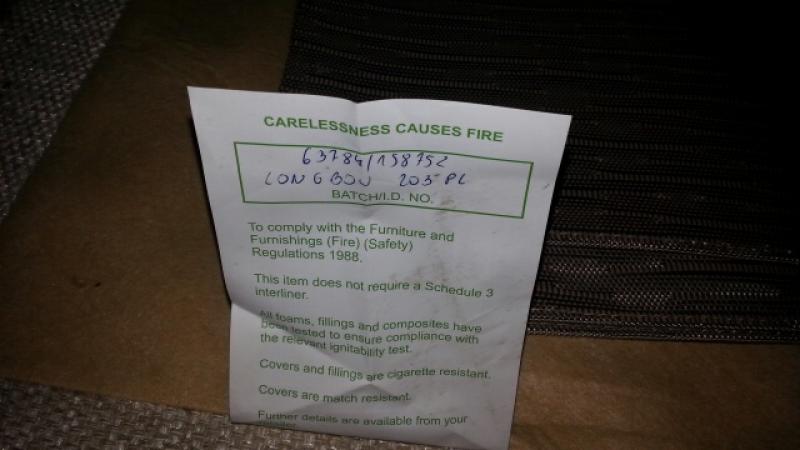 CARELESSNESS CAUSES FIRE
63784/158752
LONGBOU 203 PL
BATCH/I.D. NO.
To comply with the Furniture and
Furnishings (Fire) (Safety)
Regulations 1988.
This item does not require a Schedule 3
interliner.
All foams, fillings and composites have
been tested to ensure compliance with
the relevant ignitability test.
Covers and fillings are cigarette resistant.
Covers are match resistant.
Further details are available from your
retailer.